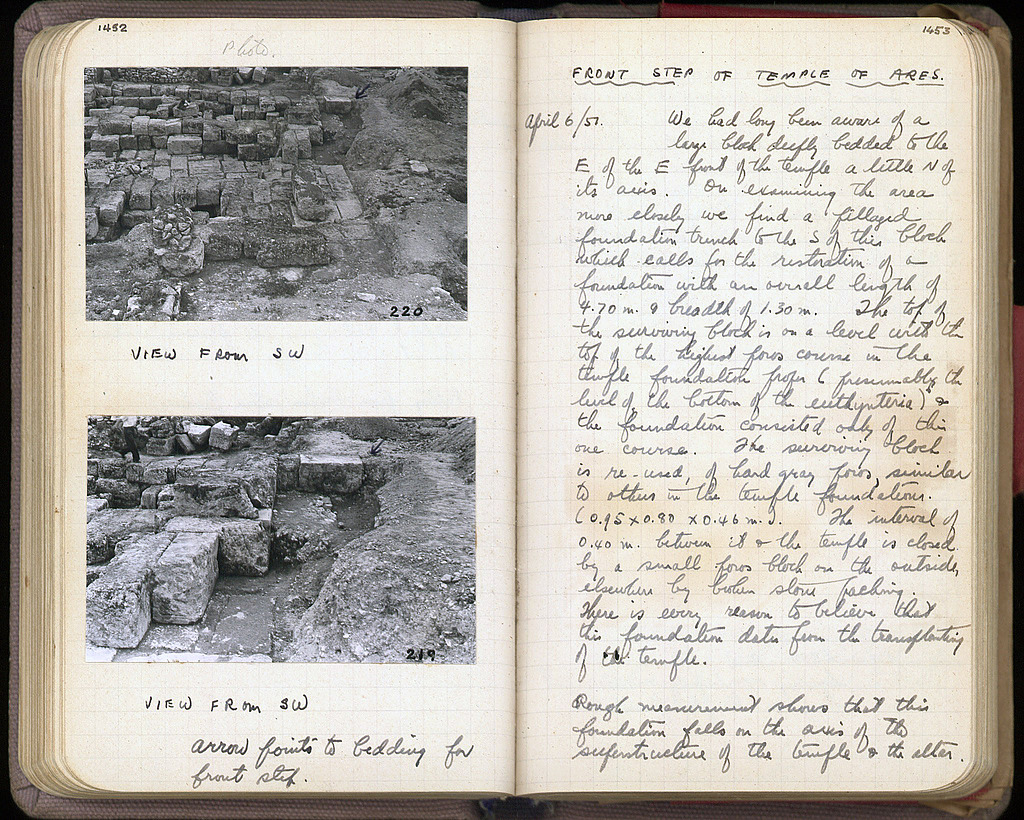 1452
Photo.
220
VIEW FROM SW
219
VIEW FROM SW
arrow points to bedding for
front step.
1453
FRONT STEP OF TEMPLE OF ARES.
April 6/51. We had long been aware of a
large block deeply bedded to the
E of the E front of the temple a little N of
its axis. On examining the area
more closely we find a pillaged
foundation trench to the S of this block
which calls for the restoration of a
foundation with an overall length of
4.70 m. & breadth of 1.30 m. The top of
the surviving block is on a level with the
top of the highest poros course in the
temple foundation proper (presumably the
level of the bottom of the euthynteria) &
the foundation consisted only of this
one course. The surviving block
is re-used, of hard gray poros, similar
to others in the temple foundations.
(0.95 x 0.80 x 0.46 m.). The interval of
0.40 m. between it & the temple is closed
by a small poros block on the outside,
elsewhere by broken stone packing.
There is every reason to believe that
this foundation dates from the transplanting
of the temple.
Rough measurement shows that this
foundation falls on the axis of the
superstructure of the temple & the altar.